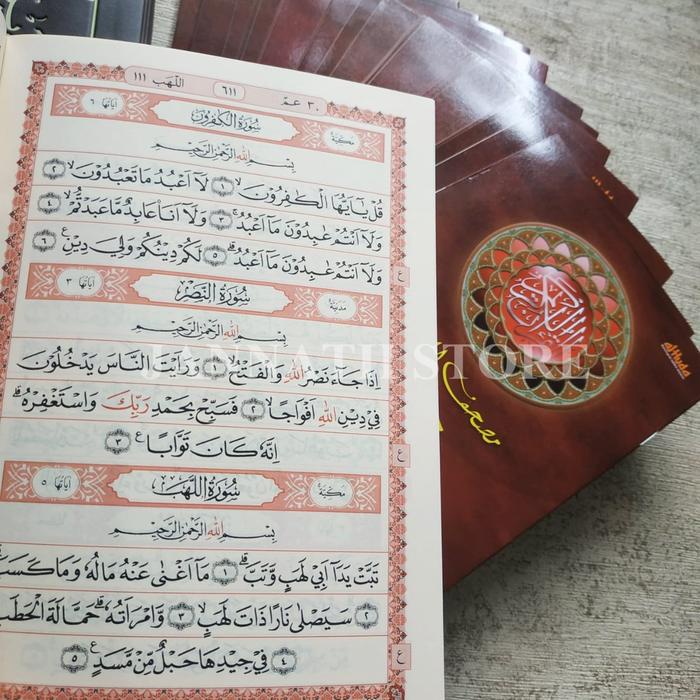 ٣٠ عمّ
٦١١
اللهب ١١١
مكية
سورة الكفرون
اياتها ٦
بِسْمِ اللهِ الرَّحْمٰنِ الرَّحِيْمِ
قُلْ يٰٓاَيُّهَا الْكٰفِرُوْنَۙ ١ لَآ اَعْبُدُ مَا تَعْبُدُوْنَۙ ٢
وَلَآ اَنْتُمْ عٰبِدُوْنَ مَآ اَعْبُدُۚ ٣ وَلَآ اَنَا۠ عَابِدٌ مَّا عَبَدْتُّمْۙ ٤
وَلَآ اَنْتُمْ عٰبِدُوْنَ مَآ اَعْبُدُۗ ٥ لَكُمْ دِيْنُكُمْ وَلِيَ دِيْنِ ࣖ ٦
ع
مدنية
سورة النصر
اياتها ٣
بِسْمِ اللهِ الرَّحْمٰنِ الرَّحِيْمِ
اِذَا جَاۤءَ نَصْرُ اللهِ وَالْفَتْحُۙ ١ وَرَاَيْتَ النَّاسَ يَدْخُلُوْنَ
فِيْ دِيْنِ اللهِ اَفْوَاجًاۙ ٢ فَسَبِّحْ بِحَمْدِ رَبِّكَ وَاسْتَغْفِرْهُۗ
اِنَّهٗ كَانَ تَوَّابًا ࣖ ٣
ع
مكية
سورة اللهب
اياتها ٥
بِسْمِ اللهِ الرَّحْمٰنِ الرَّحِيْمِ
تَبَّتْ يَدَآ اَبِيْ لَهَبٍ وَّتَبَّۗ ١ مَآ اَغْنٰى عَنْهُ مَالُهٗ وَمَا كَسَبَ
٢ سَيَصْلٰى نَارًا ذَاتَ لَهَبٍۙ ٣ وَّامْرَاَتُهٗۗ حَمَّالَةَ الْحَطَبِ
٤ فِيْ جِيْدِهَا حَبْلٌ مِّنْ مَّسَدٍ ࣖ ٥
ع
JANNATII STORE
alHuda